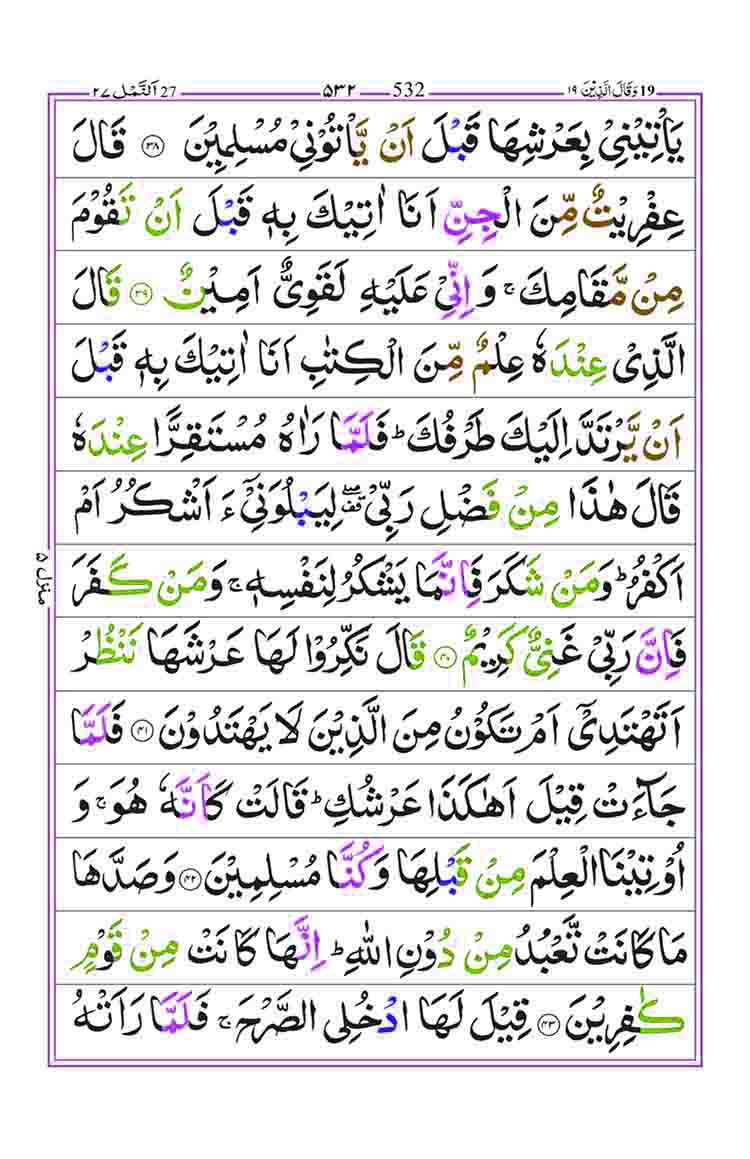 19 وَقَالَ الَّذِيْنَ ١٩ 532 ۵۳۲ 27 اَلنَّمْل ۲۷
يَاْتِيْنِىْ بِعَرْشِهَا قَبْلَ اَنْ يَّاْتُوْنِىْ مُسْلِمِيْنَ ۝۳۸ قَالَ
عِفْرِيْتٌ مِّنَ الْجِنِّ اَنَا اٰتِيْكَ بِهٖ قَبْلَ اَنْ تَقُوْمَ
مِنْ مَّقَامِكَ ۚ وَ اِنِّىْ عَلَيْهِ لَقَوِىٌّ اَمِيْنٌ ۝۳۹ قَالَ
الَّذِىْ عِنْدَهٗ عِلْمٌ مِّنَ الْكِتٰبِ اَنَا اٰتِيْكَ بِهٖ قَبْلَ
اَنْ يَّرْتَدَّ اِلَيْكَ طَرْفُكَ ؕ فَلَمَّا رَاٰهُ مُسْتَقِرًّا عِنْدَهٗ
قَالَ هٰذَا مِنْ فَضْلِ رَبِّىْ ۖۗ لِيَبْلُوَنِىْٓ ءَ اَشْكُرُ اَمْ
اَكْفُرُ ؕ وَمَنْ شَكَرَ فَاِنَّمَا يَشْكُرُ لِنَفْسِهٖ ۚ وَمَنْ كَفَرَ
فَاِنَّ رَبِّىْ غَنِىٌّ كَرِيْمٌ ۝۴۰ قَالَ نَكِّرُوْا لَهَا عَرْشَهَا نَنْظُرْ
اَتَهْتَدِىْٓ اَمْ تَكُوْنُ مِنَ الَّذِيْنَ لَا يَهْتَدُوْنَ ۝۴۱ فَلَمَّا
جَآءَتْ قِيْلَ اَهٰكَذَا عَرْشُكِ ؕ قَالَتْ كَاَنَّهٗ هُوَ ۚ وَ
اُوْتِيْنَا الْعِلْمَ مِنْ قَبْلِهَا وَ كُنَّا مُسْلِمِيْنَ ۝۴۲ وَصَدَّهَا
مَا كَانَتْ تَّعْبُدُ مِنْ دُوْنِ اللّٰهِ ؕ اِنَّهَا كَانَتْ مِنْ قَوْمٍ
كٰفِرِيْنَ ۝۴۳ قِيْلَ لَهَا ادْخُلِى الصَّرْحَ ۚ فَلَمَّا رَاَتْهُ
منزل ۵